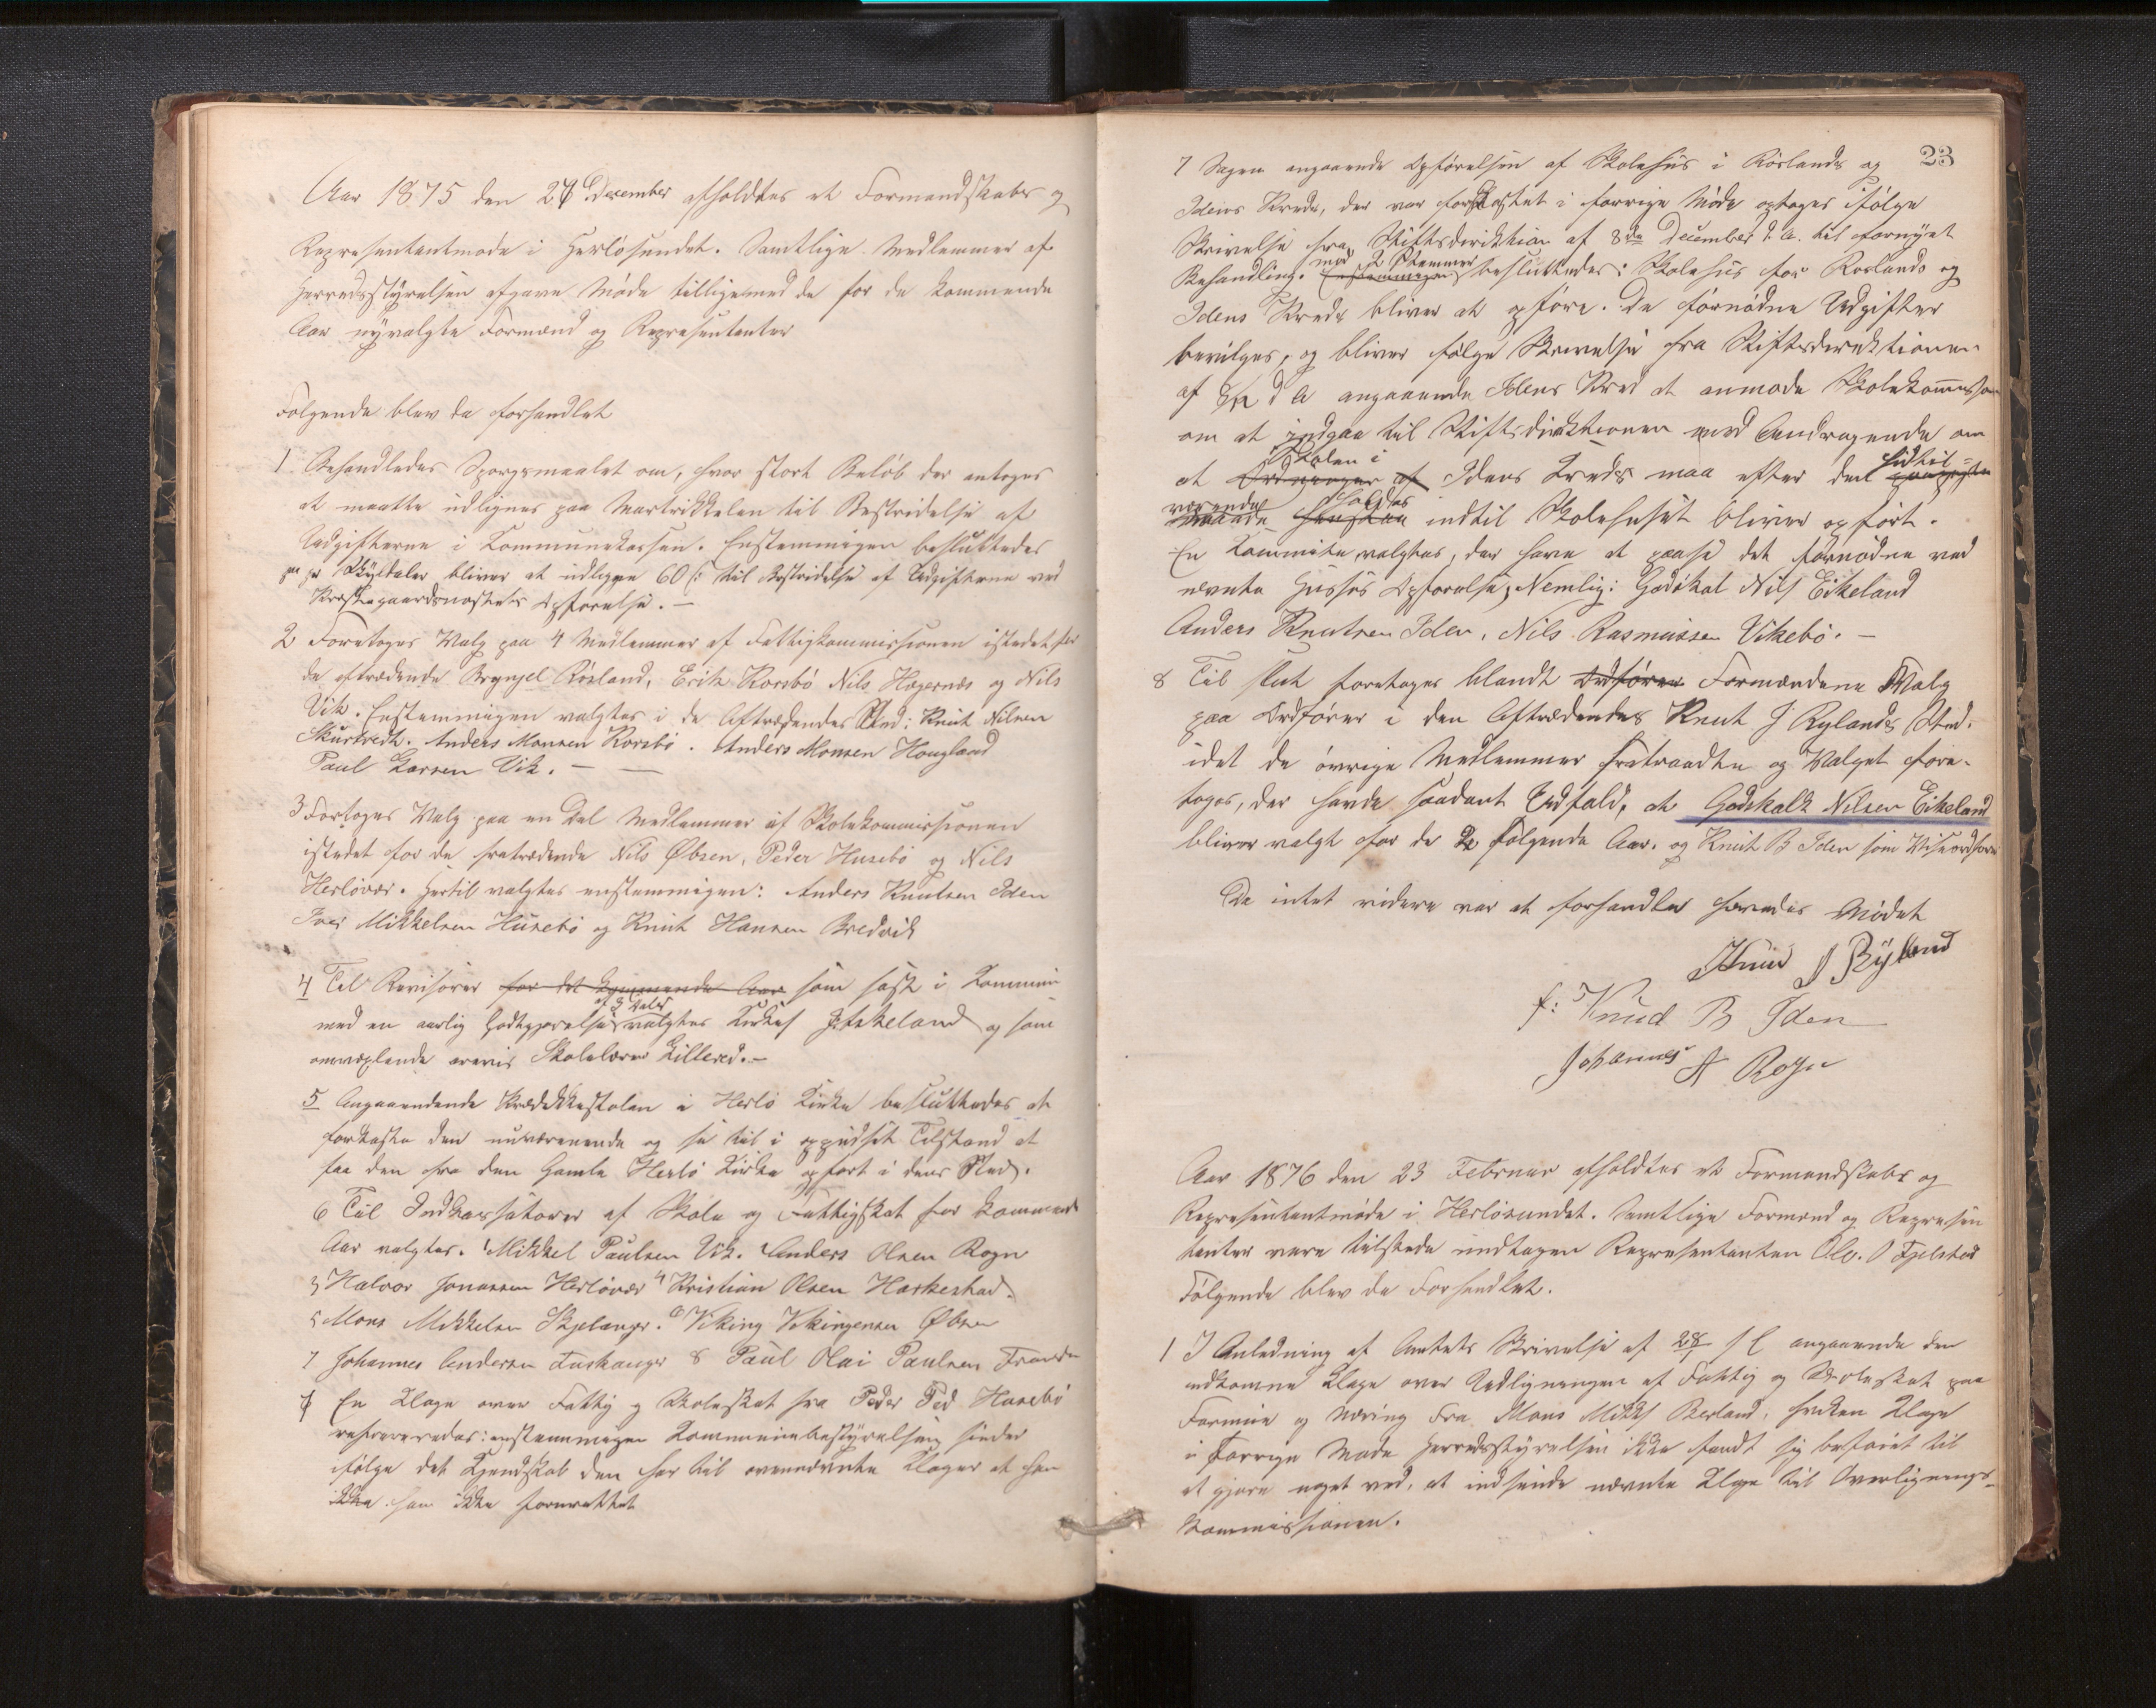 Aar 1875 den 27 December afholdtes et Formandskabs og
Representantmøde i Herløsundet. Samtlige Medlemmer af
Herredsstyrelsen afgave Møde tilligemed de for de kommende
Aar nyvalgte Formænd og Representanter
Følgende blev da forhandlet
1 Behandledes Spørgsmaalet om, hvor stort Beløb der antoges
at maatte udlignes paa Martrikkelen til Bestridelse af
Udgifterne i Kommunekassen. Enstemmigen besluttedes
pr Skyldaler bliver at udligne 60 s: til Bestridelse af Udgifterne ved
Prestegaardsnøstets Opførelse. —
2 Foretoges Valg paa 4 Medlemmer af Fattigkommissionen istedetfor
de aftrædende Brynjel Rösland, Erik Korsbö Nils Hagenæs og Nils
Vik. Enstemmigen valgtes i de Aftrædendes Sted: Knut Nilsen
Skurtvedt. Anders Monsen Korsbö. Anders Monsen Hougland
Paul Larsen Vik. —
3 Fortoges Valg paa en Del Medlemmer af Skolekommissionen
istedet for de fratrædende Nils Øbsen, Peder Husebö og Nils
Herlövær. Hertil valgtes enstemmigen: Anders Knutsen Iden
Iver Mikkelsen Husebö og Knut Hansen Bredvik
4 Til Revisorer for det kommende Aar som fast i Kommunen
af 3 Daler
med en aarlig Godtgjørelse valgtes Kirkes Eikeland og som
omvexlende Skolelærer Lillered. —
5 Angaaendende Prædikkestolen i Herlö Kirke besluttedes at
forkaste den nuværenende og se til i oppudset Tilstand at
faa den fra den Gamle Herlö Kirke opført i dens Sted.
6 Til Indkassatorer af Skole og Fattigskat for kommende
Aar valgtes. 1 Mikkel Paulsen Vik. 2 Anders Olsen Rogn
3 Halvor Jonassen Herlövær 4 Kristian Olsen Haskestad.
5 Mons Mikkelsen Skjelanger. 6 Viking Vikingensen Øbsen
7 Johannes Andersen Fushanger 8 Paul Olai Paulsen
7 En Klage over Fattig og Skoleskat fra Peder Ped Husebö
refereredes: enstemmigen Kommunebestyrelsen finder
ifølge det Kjendskab den har til ovennævnte Klager at han
ikke han ikke forurettet
23
7 Sagen angaaende Opførelsen af Skolehus i Röslands og
Idens Kreds, der var forkastet i forrige Møde optoges ifølge
Skrivelse fra Stiftsdirektion af 8de December d. A. til fornyet
med 2 Stemmer
Behandling. Enstemmigen besluttedes: Skolehus for Roslands og
Idens Kreds bliver at opføre. De fornødne Udgifter
bevilges, og bliver følge Skrivelse fra Stiftsdirektionen
af d A angaaende Idens Kred at anmode Skolekommission
om at indgaa til Stiftsdirektionen med Andragende om
Skolen i hidtil
at Ordningen af Idens Kreds maa efter den
værende holdes
Maade indtil Skolehuset bliver opført.
En Kommite valgtes, der have at paase det fornødne ved
nævnte Huses Opførelse, Nemlig: Godskal Nils Eikeland
Anders Knutsen Iden, Nils Rasmussen Vikebö. —
8 Til slut foretoges blandt Ordfører Formændene Valg
paa Ordfører i den Aftrædendes Knut J Rylands Sted.
idet de øvrige Medlemmer fratraadte og Valget fore-
toges, der havde saadant Udfald, at Godskalk Nilsen Eikeland
bliver valgt for de 2 følgende Aar. og Knut B Iden som Viseordfører
Da intet videre var at forhandle hævedes Mødet
Knud J Ryland
f: Knud B Iden
Johannes A Rogn
Aar 1876 den 23 Februar afholdtes et Formandskabs og
Representantmøde i Herlösundet. Samtlige Formænd og Represen
tanter vare tilstede undtagen Representanten Ole. O Fjelstad
Følgende blev da Forhandlet.
1 I Anledning af Amtets Skrivelse af 28/1 s l angaaende den
indkomne Klage over Udligningen af Fattig og Skoleskat paa
Formue og Næring Fra Mons Mikks Berland, hvilken Klage
i Forrige Møde Herredsstyrelsen ikke fandt sig beføiet til
at gjøre noget ved, at indsende nævnte Klage til Overlignings-
kommissionen.